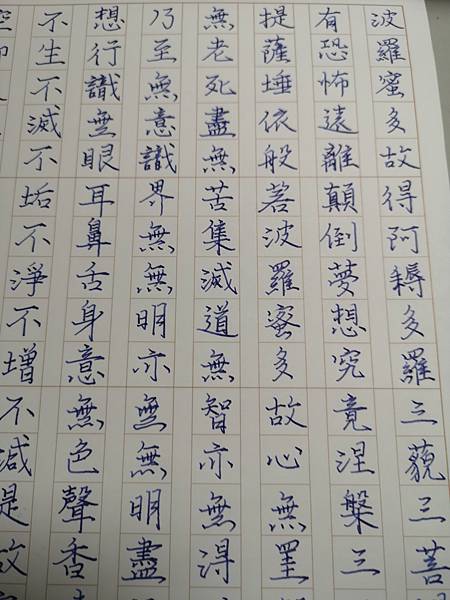 波羅蜜多故得阿耨多羅三藐三菩
有恐怖遠離顛倒夢想究竟涅槃三
提薩埵依般若波羅蜜多故心無罣
無老死盡無苦集滅道無智亦無得
乃至無意識界無無明亦無無明盡
想行識無眼耳鼻舌身意無色聲香
不生不滅不垢不淨不增不減是故